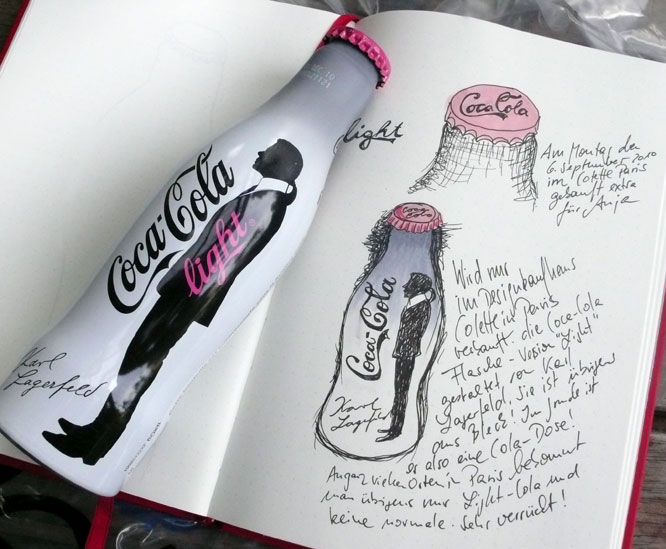 Coca-Cola
light
Karl
Lagerfeld
light
Coca-Cola
Am Montag den
6. September 2010
im Colette Paris
gekauft extra
für Anja
Coca-Cola
Coca-Cola
Karl
Lagerfeld
Wird nur
im Designkaufhaus
Colette in Paris
verkauft: die Coca-Cola
Flasche-Version "Light"
gestaltet von Karl
Lagerfeld. Sie ist übrigens
aus Blech! Im Grunde ist
es also eine Cola-Dose!
An ganz vielen Orten in Paris bekommt
man übrigens nur Light-Cola und
keine normale. Sehr verrückt!